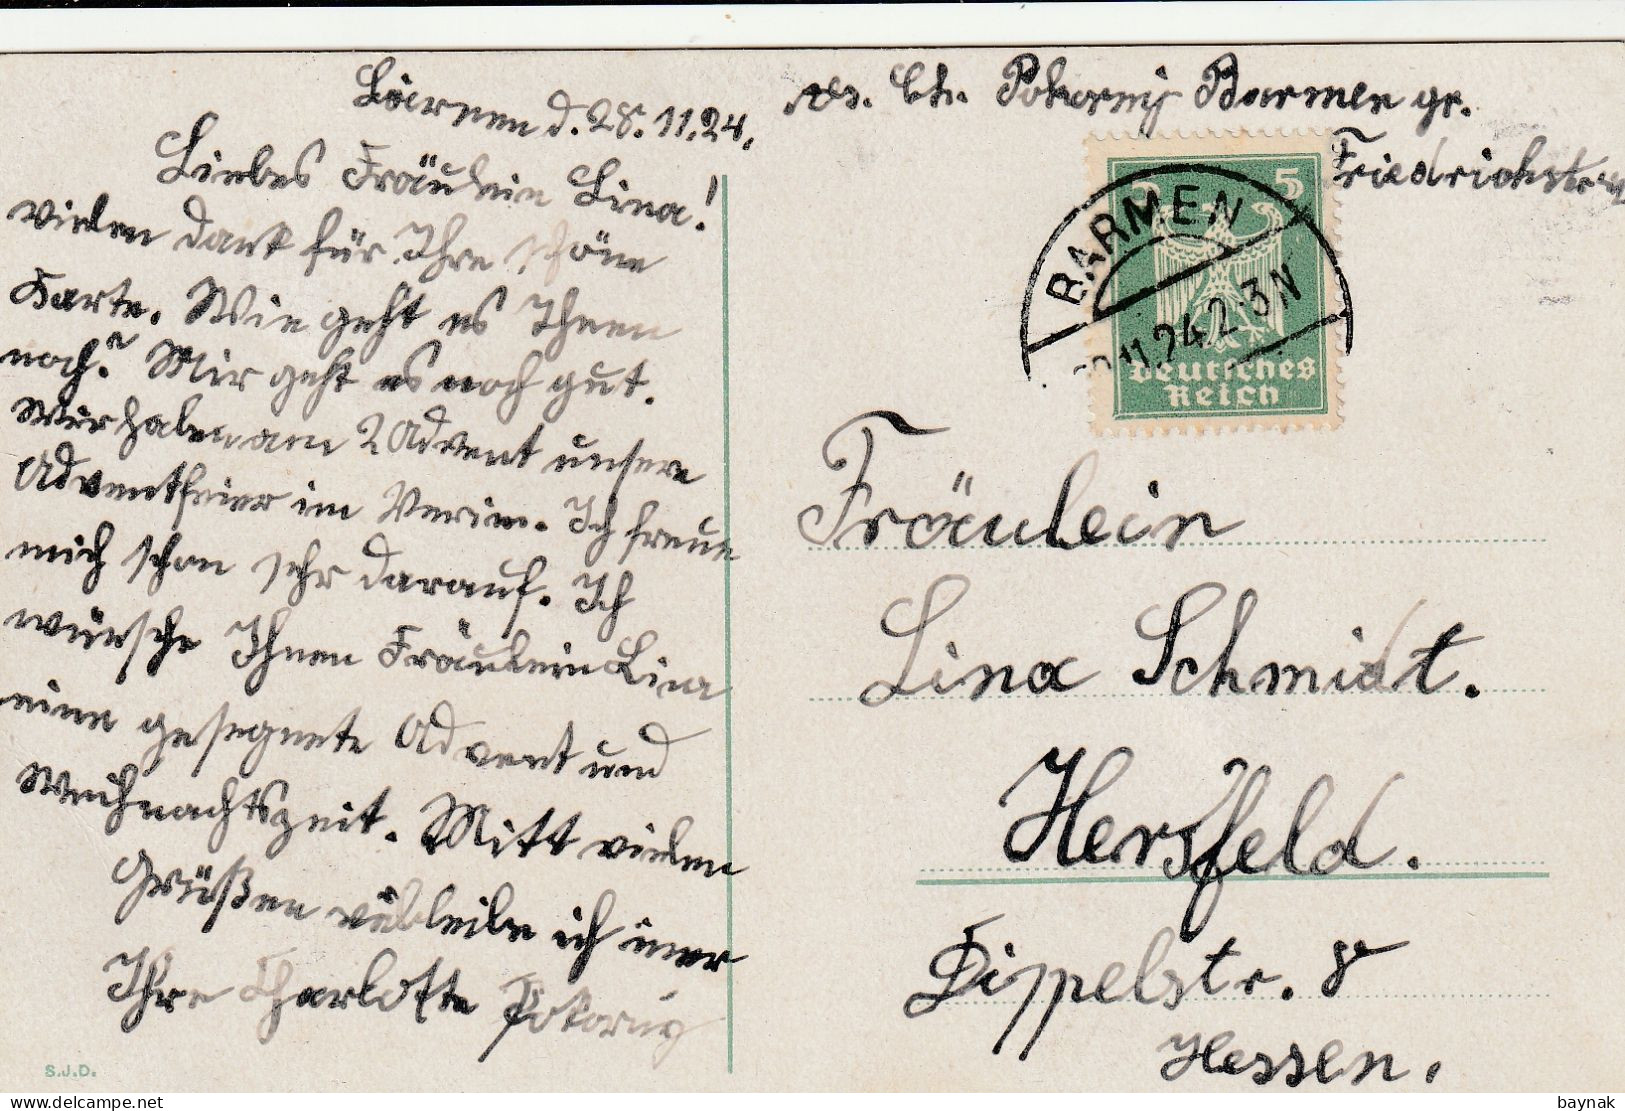 Barmen d. 28.11.24.
Liebes Fräulein Lina!
vielen Dank für Ihre schöne
Karte. Wie geht es Ihnen
noch? Mir geht es noch gut.
Wir haben am 2 Advent unsere
Adventfeier im Verein. Ich freue
mich schon sehr darauf. Ich
wünsche Ihnen Fräulein Lina
eine gesegnete Advent und
Weihnachtszeit. Mitt vielen
Grüßen verbleibe ich imer
Ihre Charlotte Pokorny
S.J.D.
Ch. Pokorny Barmen gr.
Friedrichstr.
5 5
BARMEN
11.24 2-3N
Deutsches
Reich
Fräulein
Lina Schmidt.
Hersfeld.
Dippelstr. 8
Hessen.
baynak